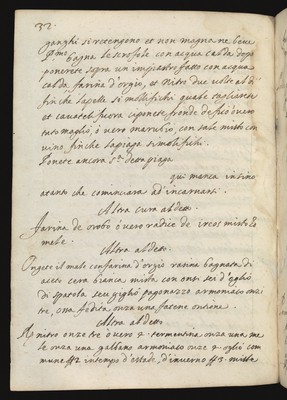 32.
ganghi si retengono et non magna me bene
P.mo bagna le scrofole con acqua calda dopo
ponerete sopra un impiastro fatto con acqua
calda farina d'orgio, et Nitro due volte al dì
finche la pelle si mollifichi quale tagliarai
et cavatela fuora ci ponete fronde de fico overo
tute meglio, o vero marubio, con sale misto con
vino, finche la piaga si mollifichi.
Ponete ancora s.a detta piaga
qui manca insino
atanto che cominciara ad incarnarsi
Altra cura al detto.
Farina de orobo o vero radice de ireos misto co
mele.
Altra al detto.
Ongete il male con farina d'orgio rasina bagnata di
aceto cera bianca mista con onsi seu d'oglio
di seu giglio pagonazzo armoniaco onze
tre, onza una facene ontione.
Altra al detto
R nitro onze tre o vero 4 termentina onza una me
le onza una galbano armoniaco onze 4 oglio com
mune ff 2 in tempo d'estade, d'inverno ff 3. miste